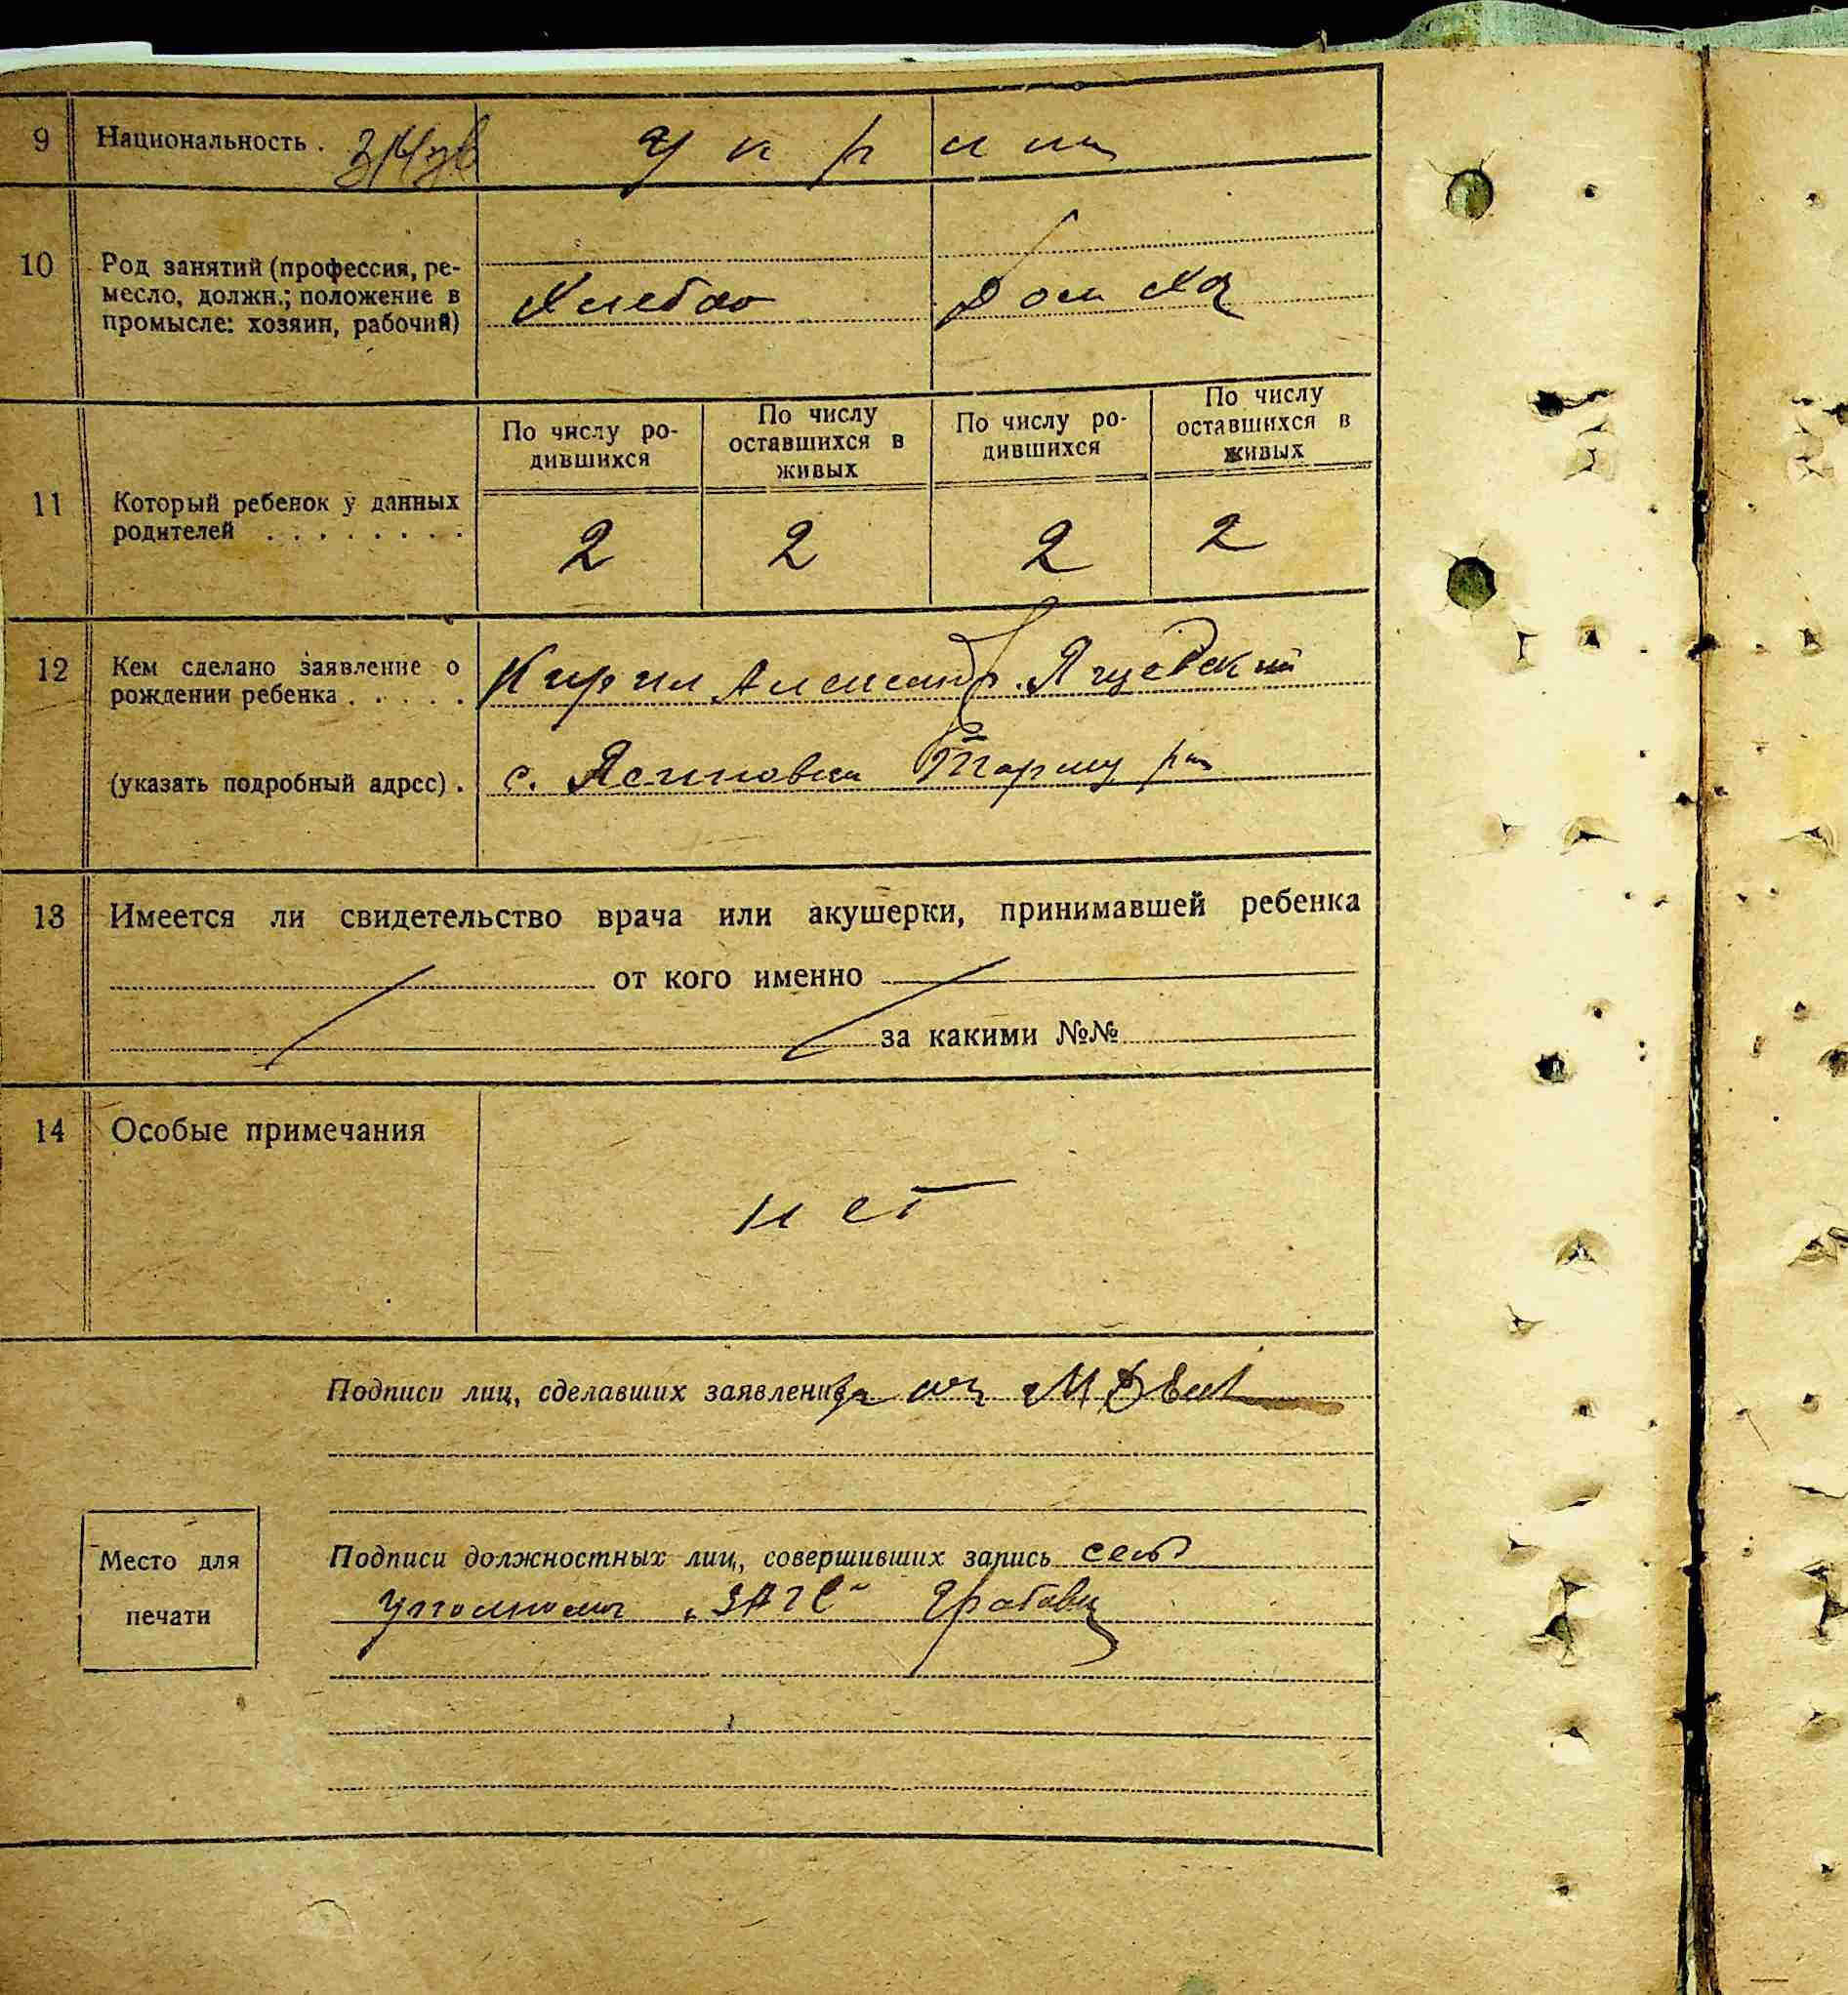 9 Национальность . у к р а и н
10 Род занятий (профессия, ре-
месло, должн.; положение в
промысле: хозяин, рабочий)
Хлебоо Дом хоз
11 Который ребенок у данных
родителей . . . . . . . .
По числу ро-
дившихся
По числу
оставшихся в
живых
По числу ро-
дившихся
По числу
оставшихся в
живых
2 2 2 2
12 Кем сделано заявление о
рождении ребенка . . . . .
Кирил Александр.
(указать подробный адрес) .
с. Ясиновка
13 Имеется ли свидетельство врача или акушерки, принимавшей ребенка
от кого именно
за какими №№
14 Особые примечания
нет
Подписи лиц, сделавших заявление
Место для
печати
Подписи должностных лиц, совершивших запись
"ЗАГС"